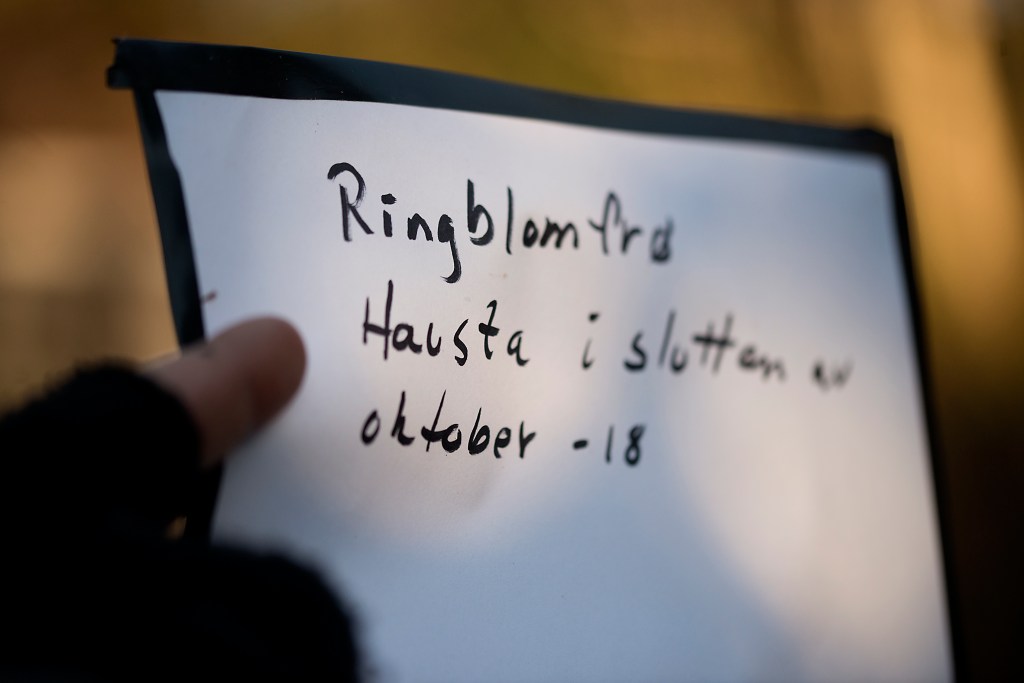 Ringblomfrø
Hausta i slutten av
oktober -18